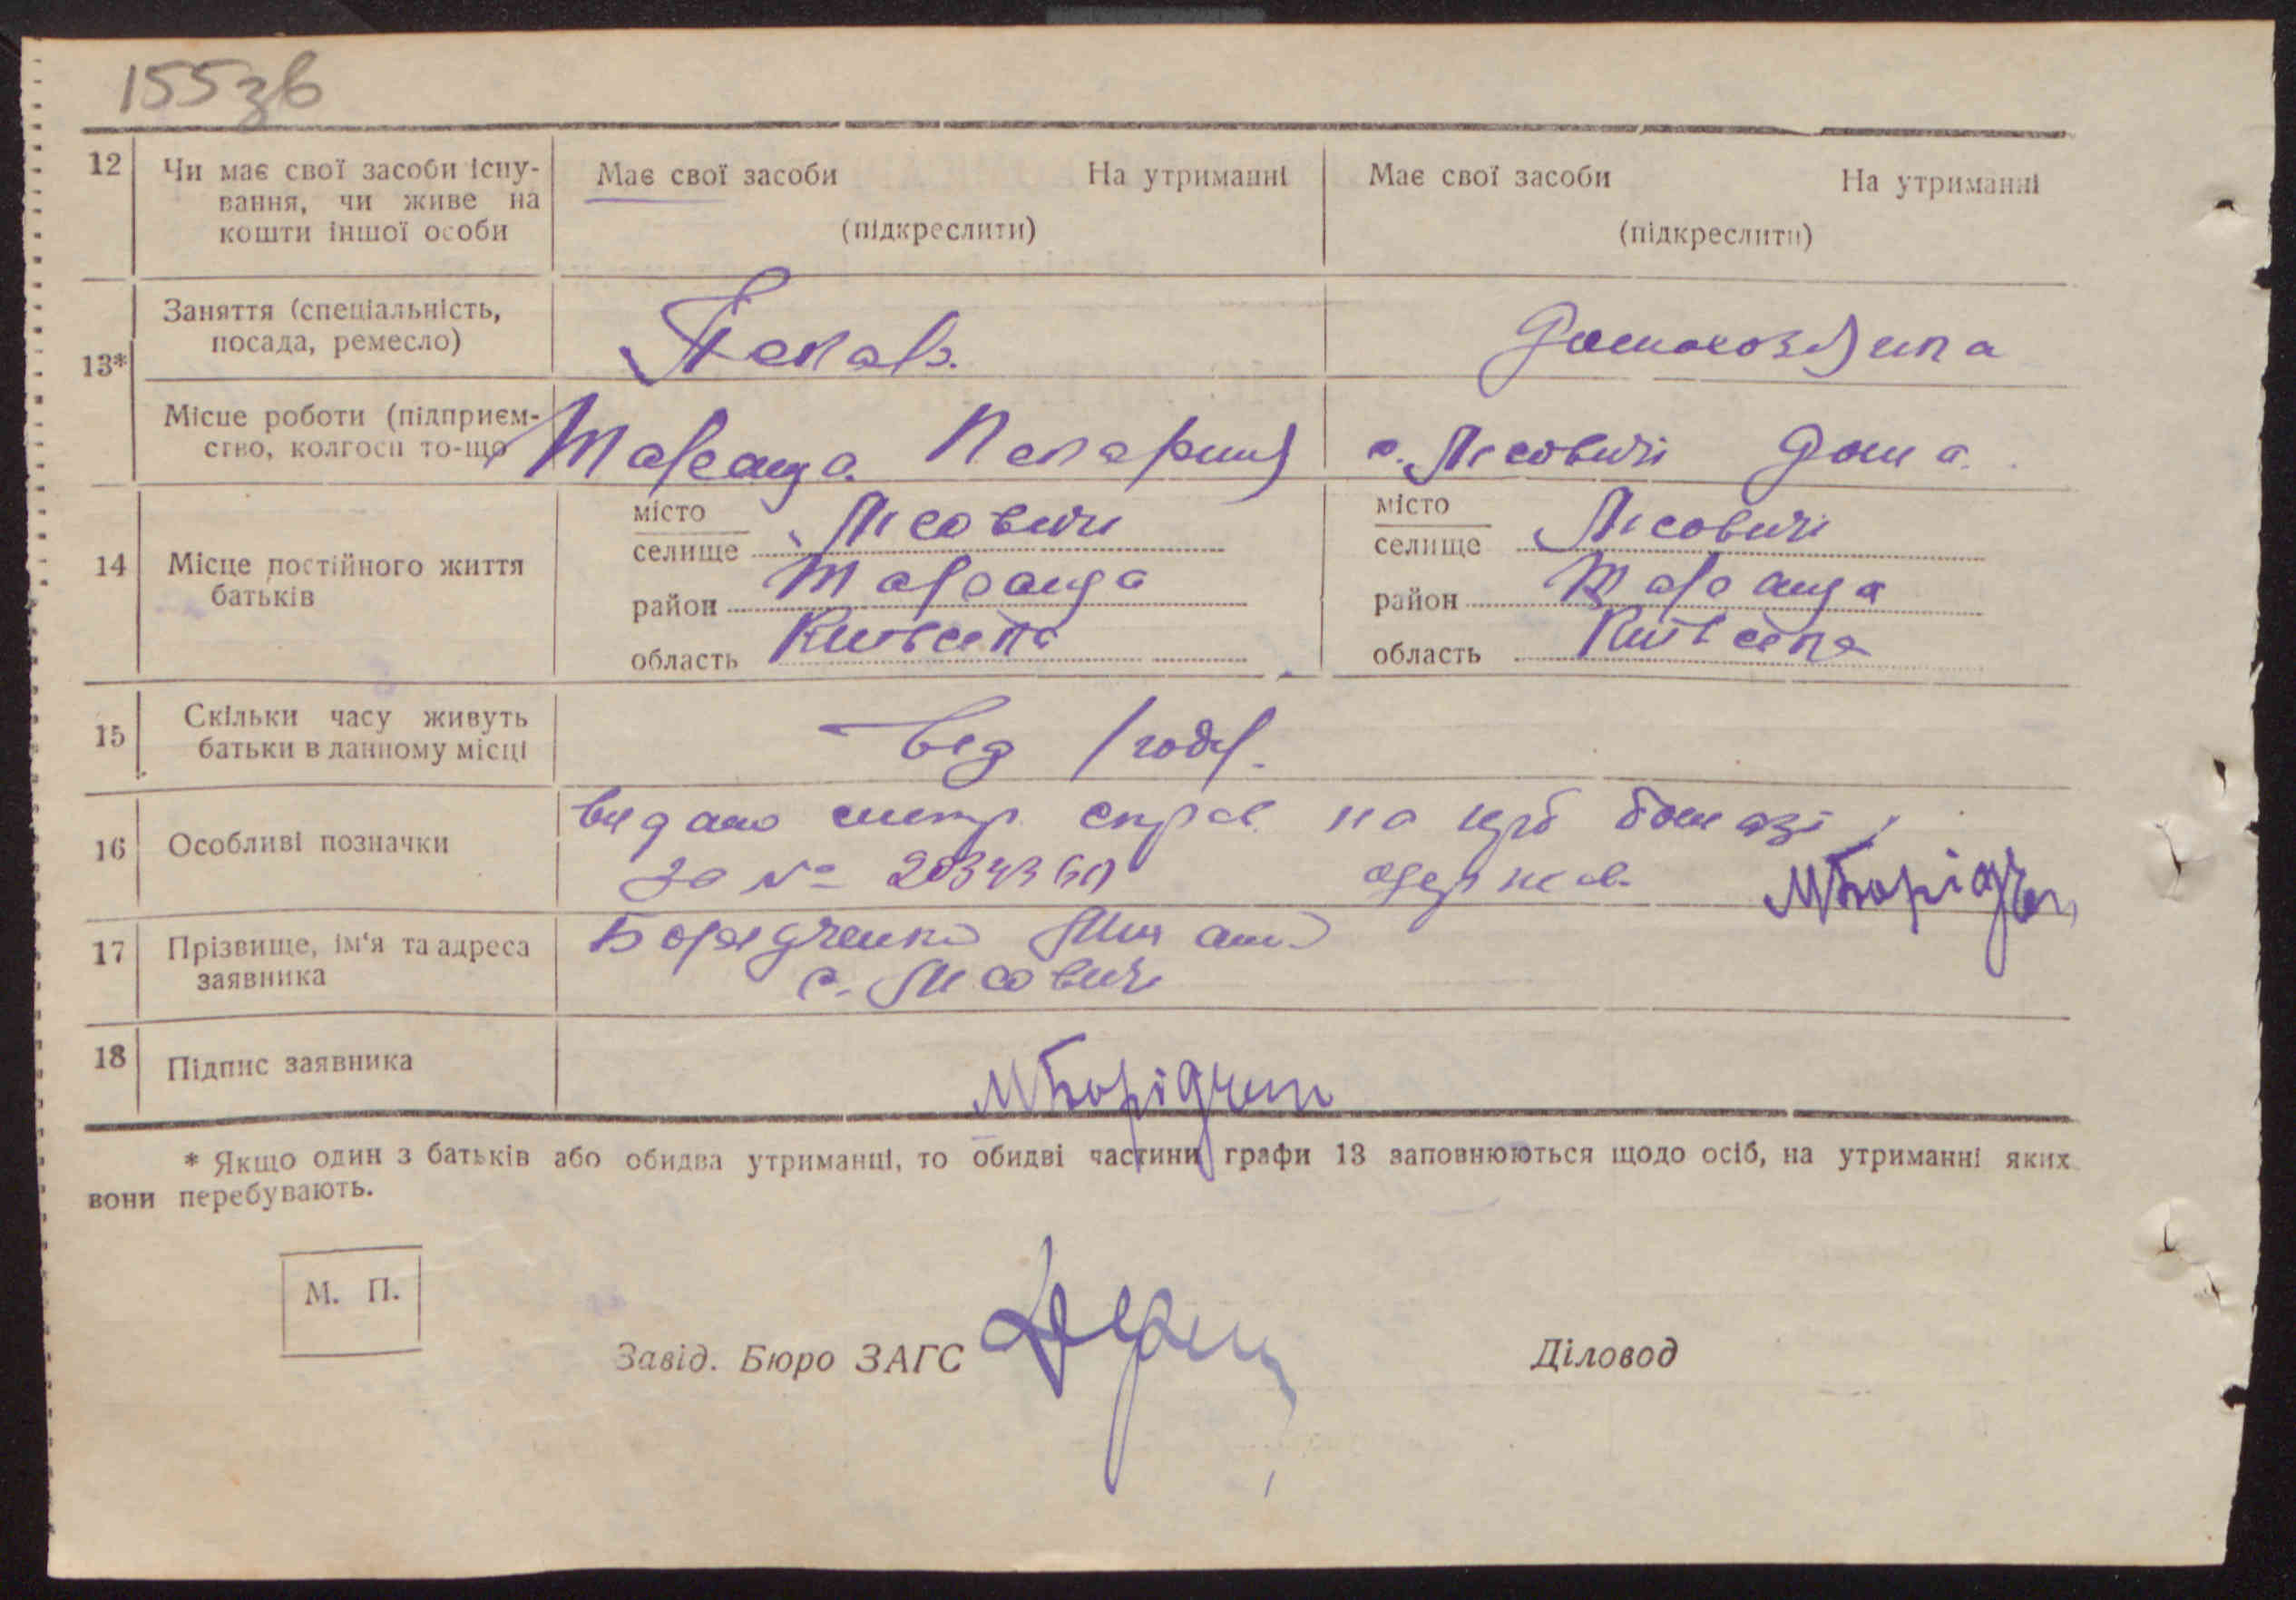 155зв
12 Чи має свої засоби існу-
вання, чи живе на
кошти іншої особи
Має свої засоби На утриманні
(підкреслити)
Має свої засоби На утриманні
(підкреслити)
13*
Заняття (спеціальність,
посада, ремесло)
Пекар.
Домохозяика
Місце роботи (підприєм-
ство, колгосп то-що
Тараща Пекарни
с. Лісовичі Дома.
14 Місце постійного життя
батьків
місто
селище Лісовичі
район Тараща
область Киівська
місто
селище Лісовичі
район Тараща
область Киівська
15 Скільки часу живуть
батьки в данному місці
від родж.
16 Особливі позначки
видано справ на герб бомазі
за № одержав МБорідчен
17 Прізвище, ім'я та адреса
заявника
Боридченко
с. Лісовичі
18 Підпис заявника
МБорідчен
* Якщо один з батьків або обидва утриманці, то обидві частини графи 13 заповнюються щодо осіб, на утриманні яких
вони перебувають.
М. П.
Завід. Бюро ЗАГС
Діловод